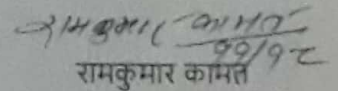 रामकुमार कामत
११/१८
रामकुमार कामत